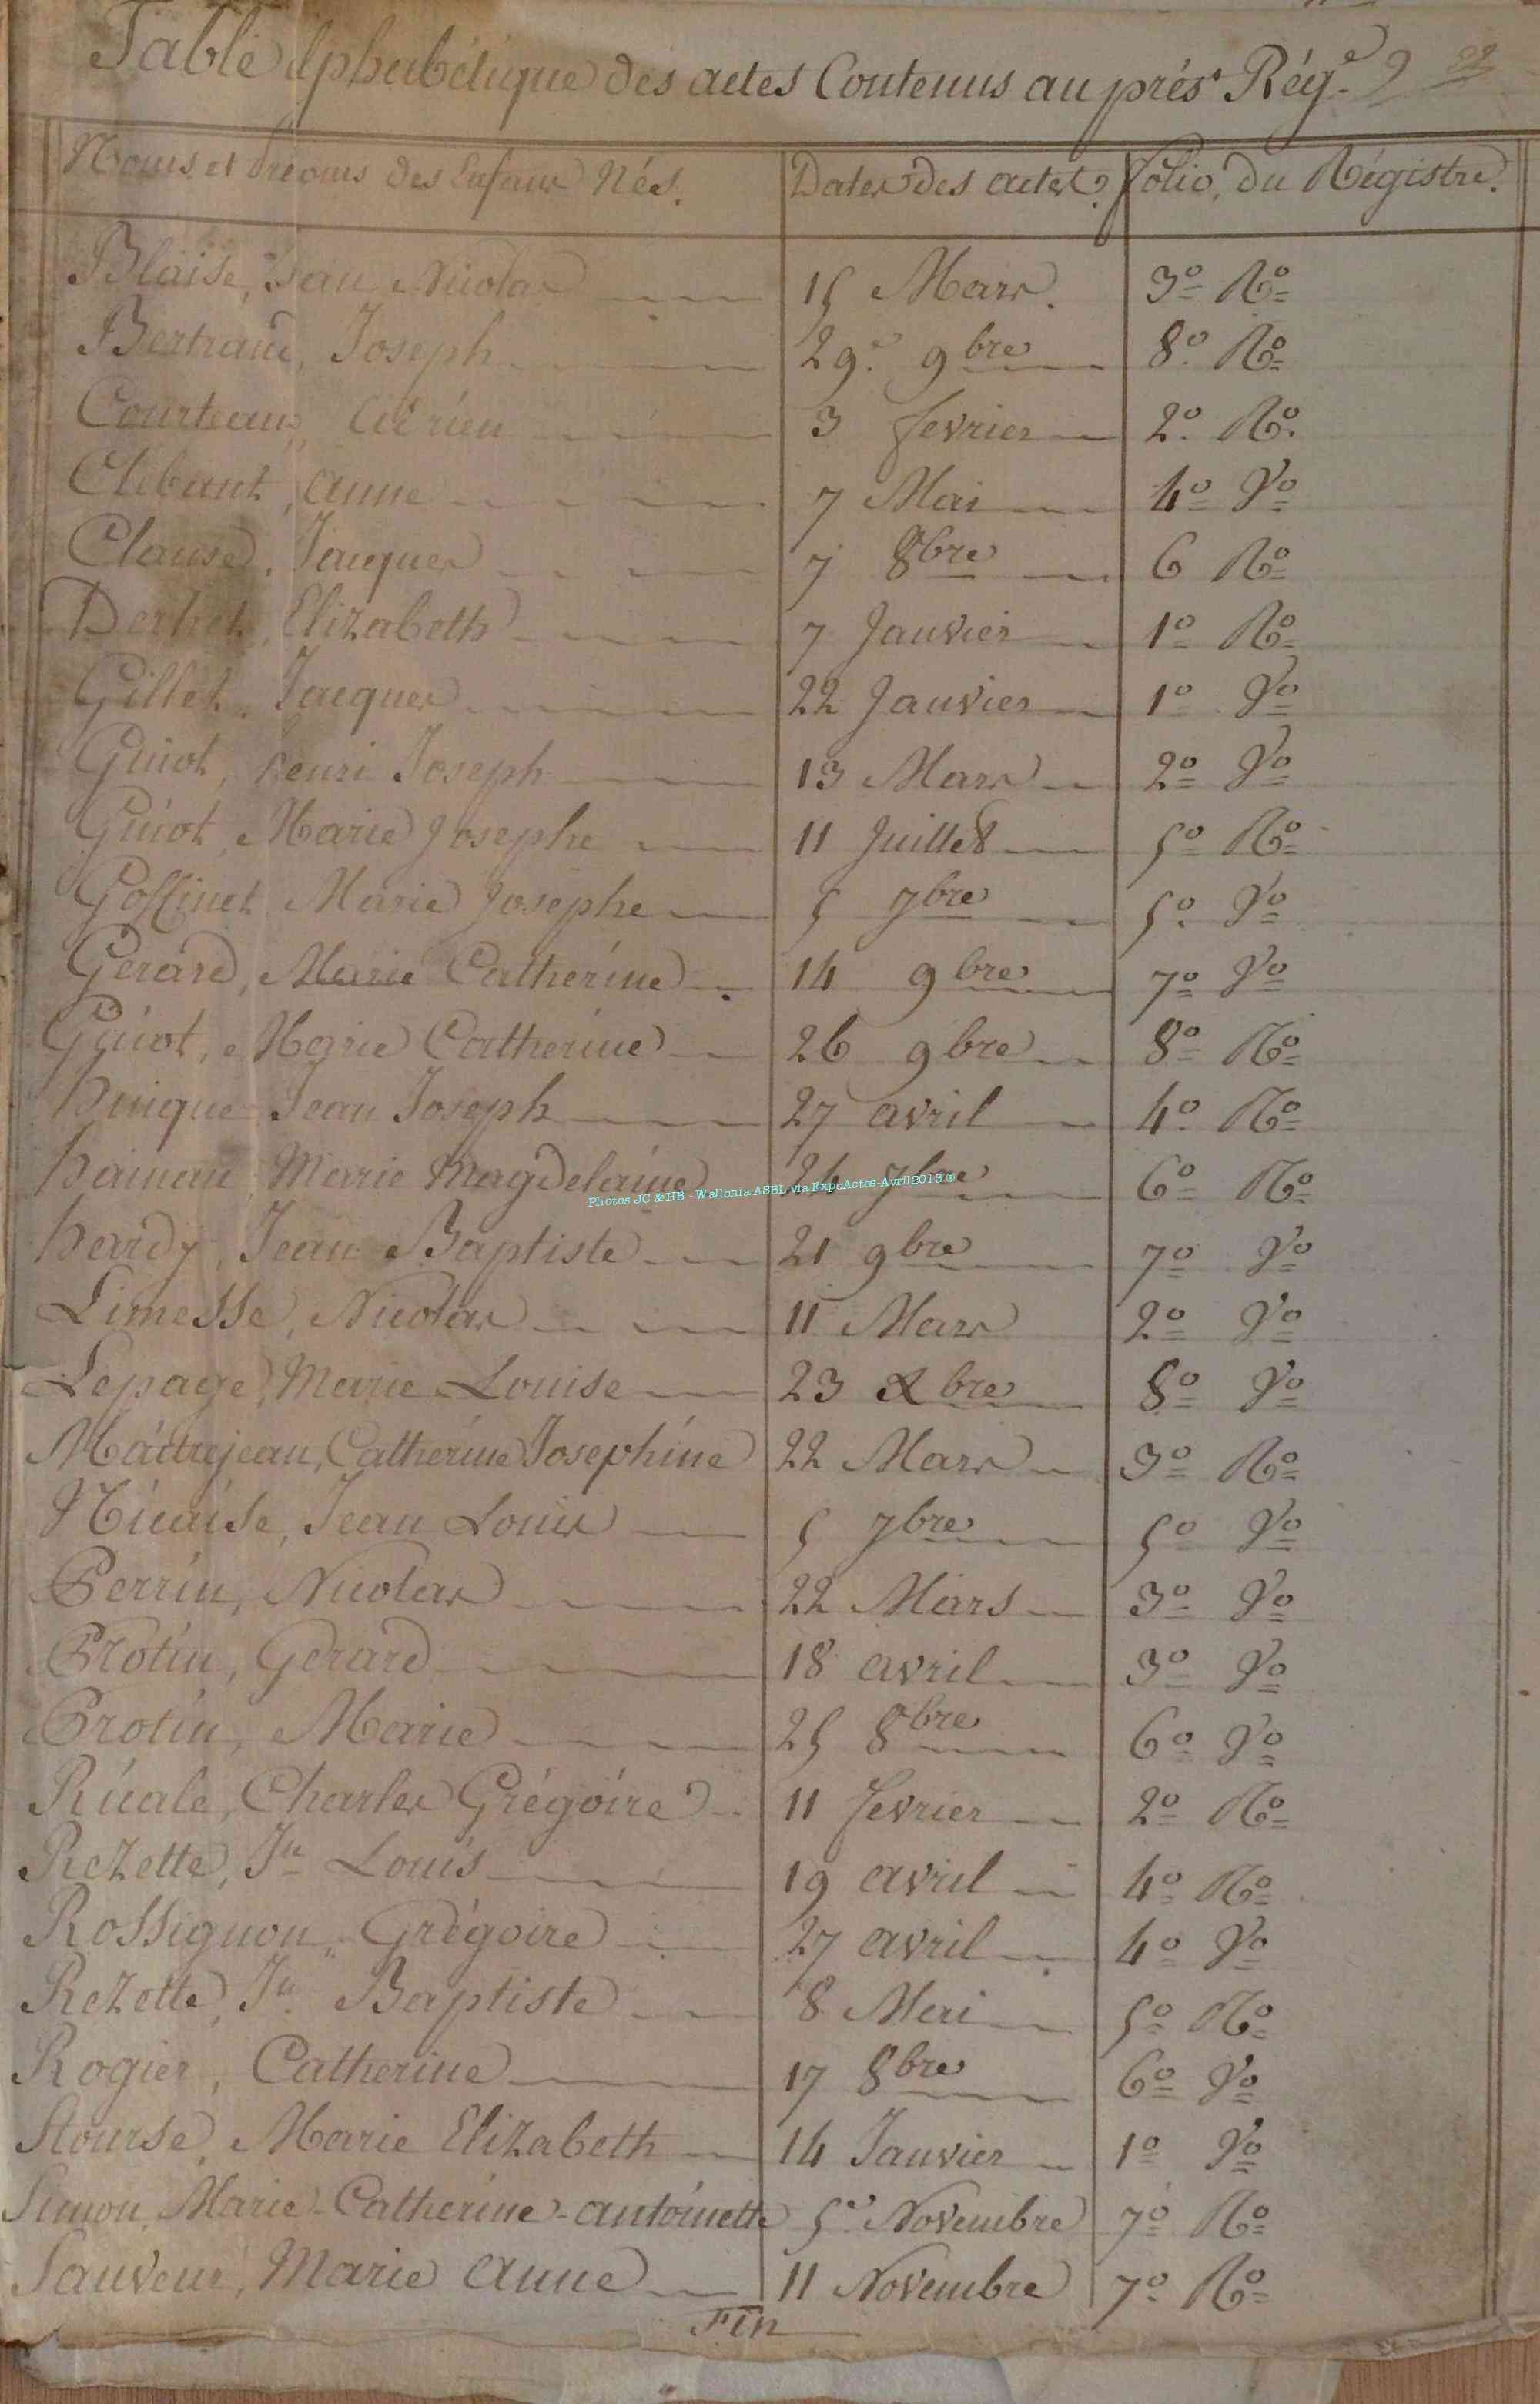 Table alphabétique des actes Contenus au prést Rége 9
Noms et Prenoms des Enfans Nés. Dates des actes. folio, du Régistre.
Blaise, Jean Nicolas 15 Mars. 3o Ro
Bertrand, Joseph 29e 9bre 8o Ro
Courteaux, Adrien 3 fevrier 2o Ro
Clebant, anne 7 Mai 4o Vo
Clause, Jacques 7 8bre 6 Ro
Derhet, Elizabeth 7 Janvier 1o Ro
Gillet, Jacques 22 Janvier 1o Vo
Guiot, henri Joseph 13 Mars 2o Vo
Guiot, Marie Josephe 11 Juillet 5o Ro
Goffinet Marie Josephe 5 7bre 5o Vo
Gerard, Marie Catherine 14 9bre 7o Vo
Guiot, Marie Catherine 26 9bre 8o Ro
huique Jean Joseph 27 avril 4o Ro
hainau Marie Magdelaine 7bre 6o Ro
Photos JC & HB - Wallonia ASBL via ExpoActes-Avril2013 ©
hardy, Jean Baptiste 21 9bre 7o Vo
Limesse, Nicolas 11 Mars 2o Vo
Lepage, Marie Louise 23 Xbre 8o Vo
Maitrejean, Catherine Josephine 22 Mars 3o Ro
Nicaise, Jean Louis 5 7bre 5o Vo
Perrin, Nicolas 22 Mars 3o Vo
Protin, Gerard 18 avril 3o Vo
Protin, Marie 25 8bre 6o Vo
Ricale, Charles Grégoire 11 fevrier 2o Ro
Rezette, Jn Louis 19 avril 4o Ro
Rossignon, Grégoire 27 avril 4o Vo
Rezette, Jn Baptiste 8 Mai 5o Ro
Rogier, Catherine 17 8bre 6o Vo
Stourse, Marie Elizabeth 14 Janvier 1o Vo
Simon, Marie-Catherine-antoinette 5e Novembre 7o Ro
Sauveur, Marie anne 11 Novembre 7o Ro
Fin